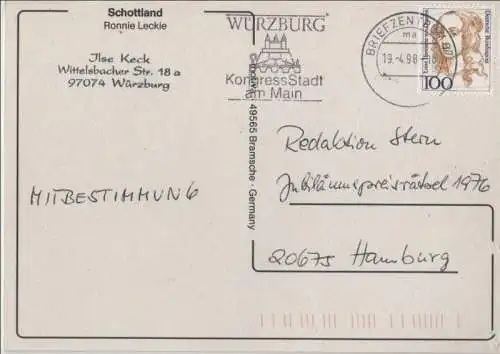 Schottland
Ronnie Leckie
Ilse Keck
Wittelsbacher Str. 18 a
97074 Würzburg
MITBESTIMMUNG
WÜRZBURG
KongressStadt
am Main
BRIEFZEN
ma
19.-4.98
Deutsche Bundespost
100
49565 Bramsche · Germany
Redaktion Stern
Jubiläumspreisrätsel 1976
20675 Hamburg